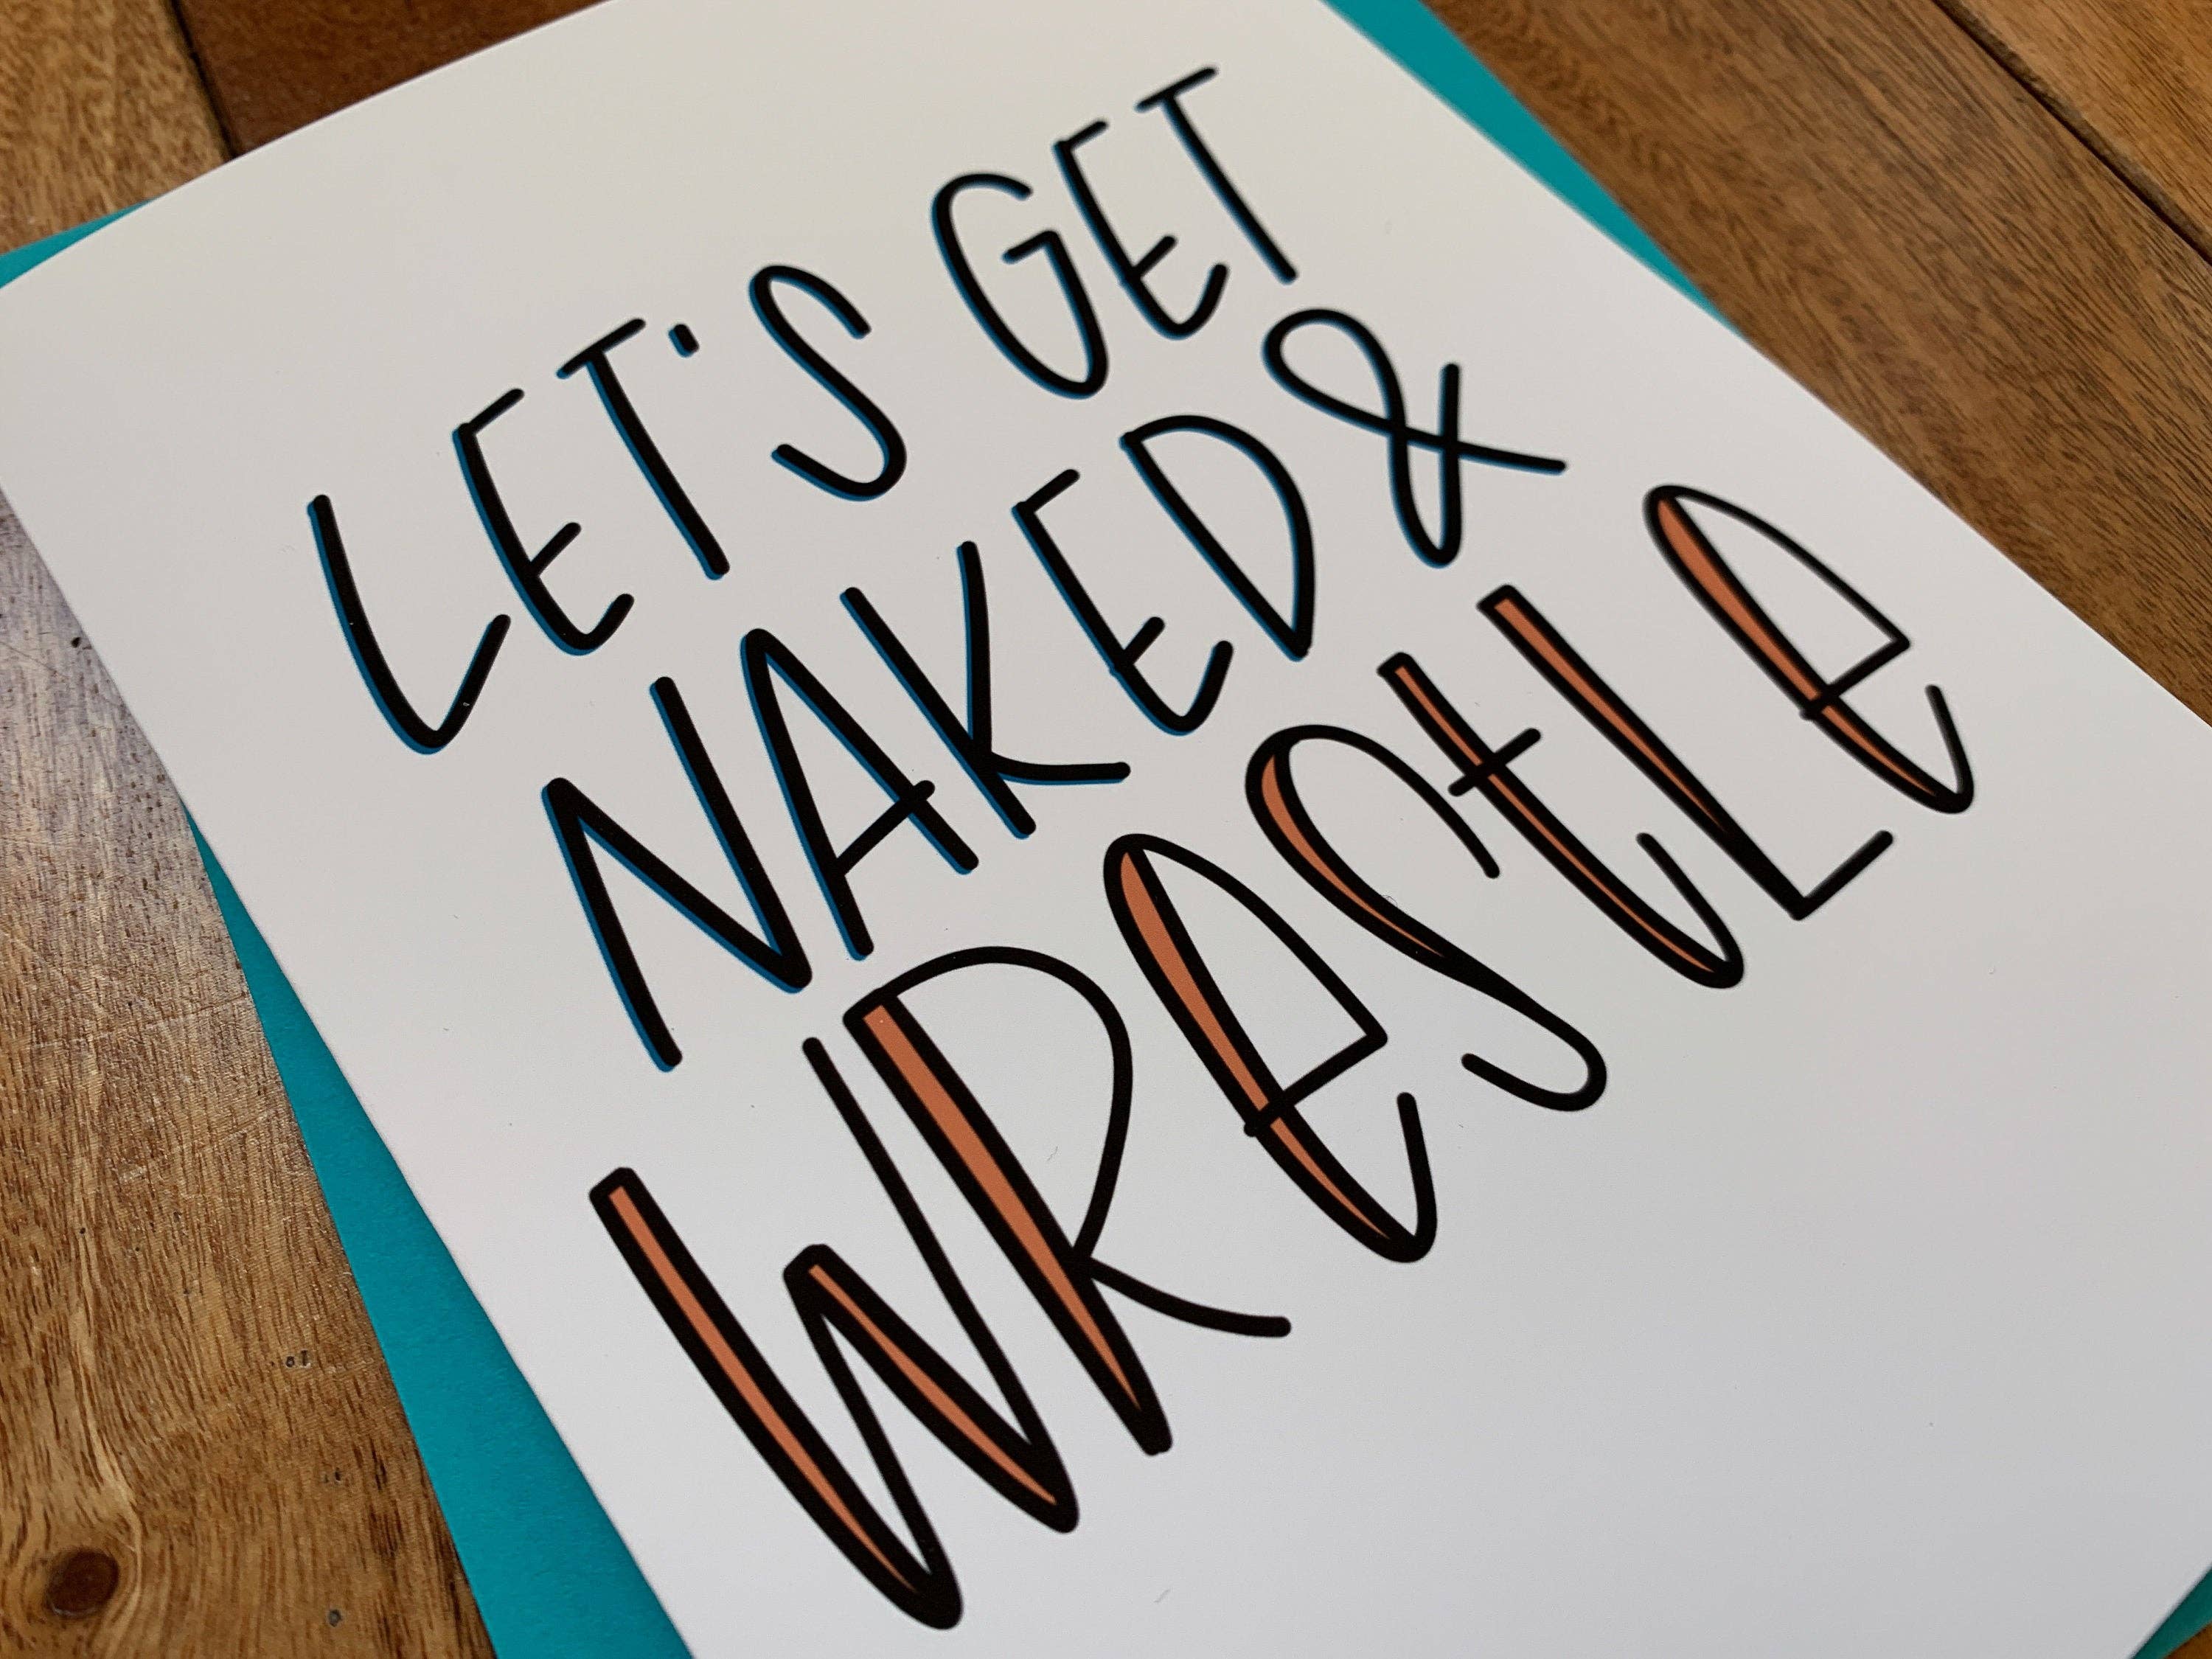 LET'S GET
NAKED &
WRestLe